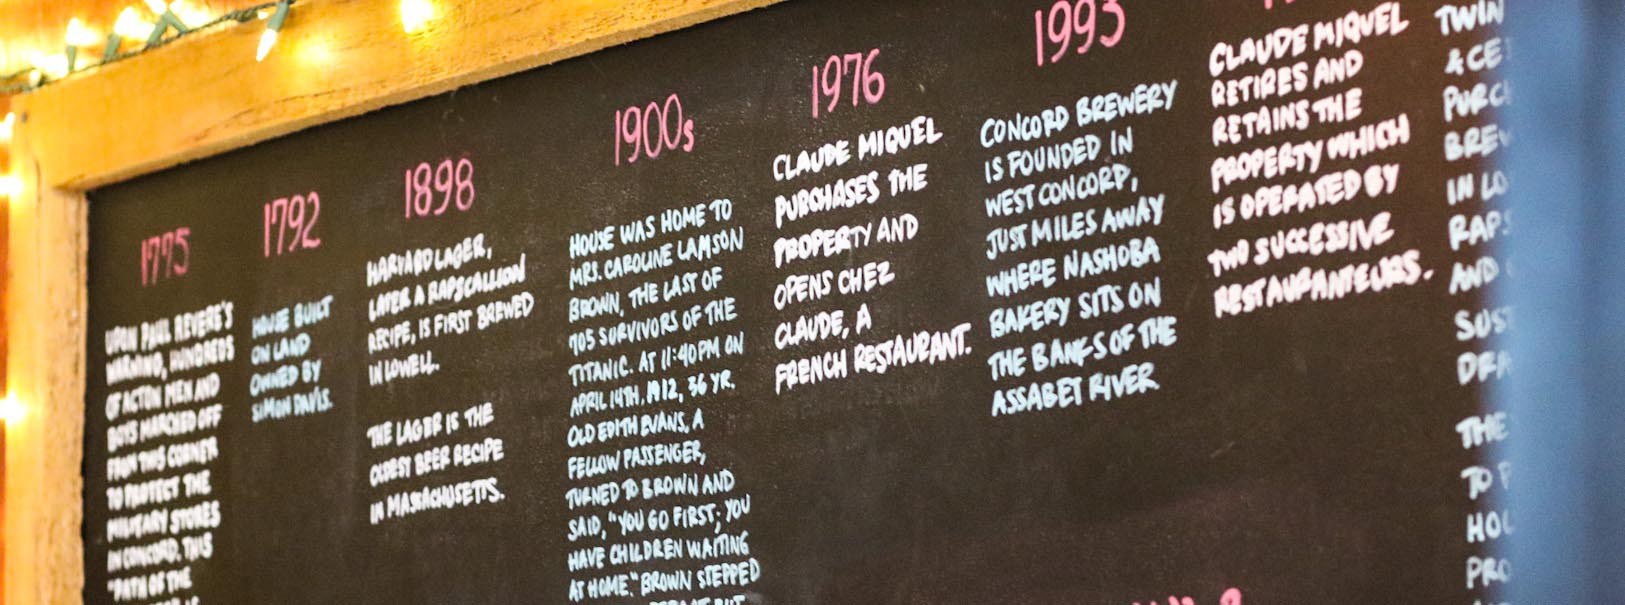 1775
UPON PAUL REVERE'S
WARNING, HUNDREDS
OF ACTON MEN AND
BOYS MARCHED OFF
FROM THIS CORNER
TO PROTECT THE
MILITARY STORES
IN CONCORD. THIS
"PATH OF THE
1792
HOUSE BUILT
ON LAND
OWNED BY
SIMON DAVIS.
1898
HARVARD LAGER,
LATER A RAPSCALLION
RECIPE, IS FIRST BREWED
IN LOWELL.
THE LAGER IS THE
OLDEST BEER RECIPE
IN MASSACHUSETTS.
1900s
HOUSE WAS HOME TO
MRS. CAROLINE LAMSON
BROWN, THE LAST OF
705 SURVIVORS OF THE
TITANIC. AT 11:40PM ON
APRIL 14TH, 1912, 36 YR.
OLD EDITH EVANS, A
FELLOW PASSENGER,
TURNED TO BROWN AND
SAID, "YOU GO FIRST; YOU
HAVE CHILDREN WAITING
AT HOME." BROWN STEPPED
1976
CLAUDE MIQUEL
PURCHASES THE
PROPERTY AND
OPENS CHEZ
CLAUDE, A
FRENCH RESTAURANT.
1993
CONCORD BREWERY
IS FOUNDED IN
WEST CONCORD,
JUST MILES AWAY
WHERE NASHOBA
BAKERY SITS ON
THE BANKS OF THE
ASSABET RIVER.
CLAUDE MIQUEL
RETIRES AND
RETAINS THE
PROPERTY WHICH
IS OPERATED BY
TWO SUCCESSIVE
RESTAURANTEURS.
TWIN
& CE
PURC
BREW
IN LO
RAPS
AND
SUS
DRA
THE
TO P
HOU
PRO